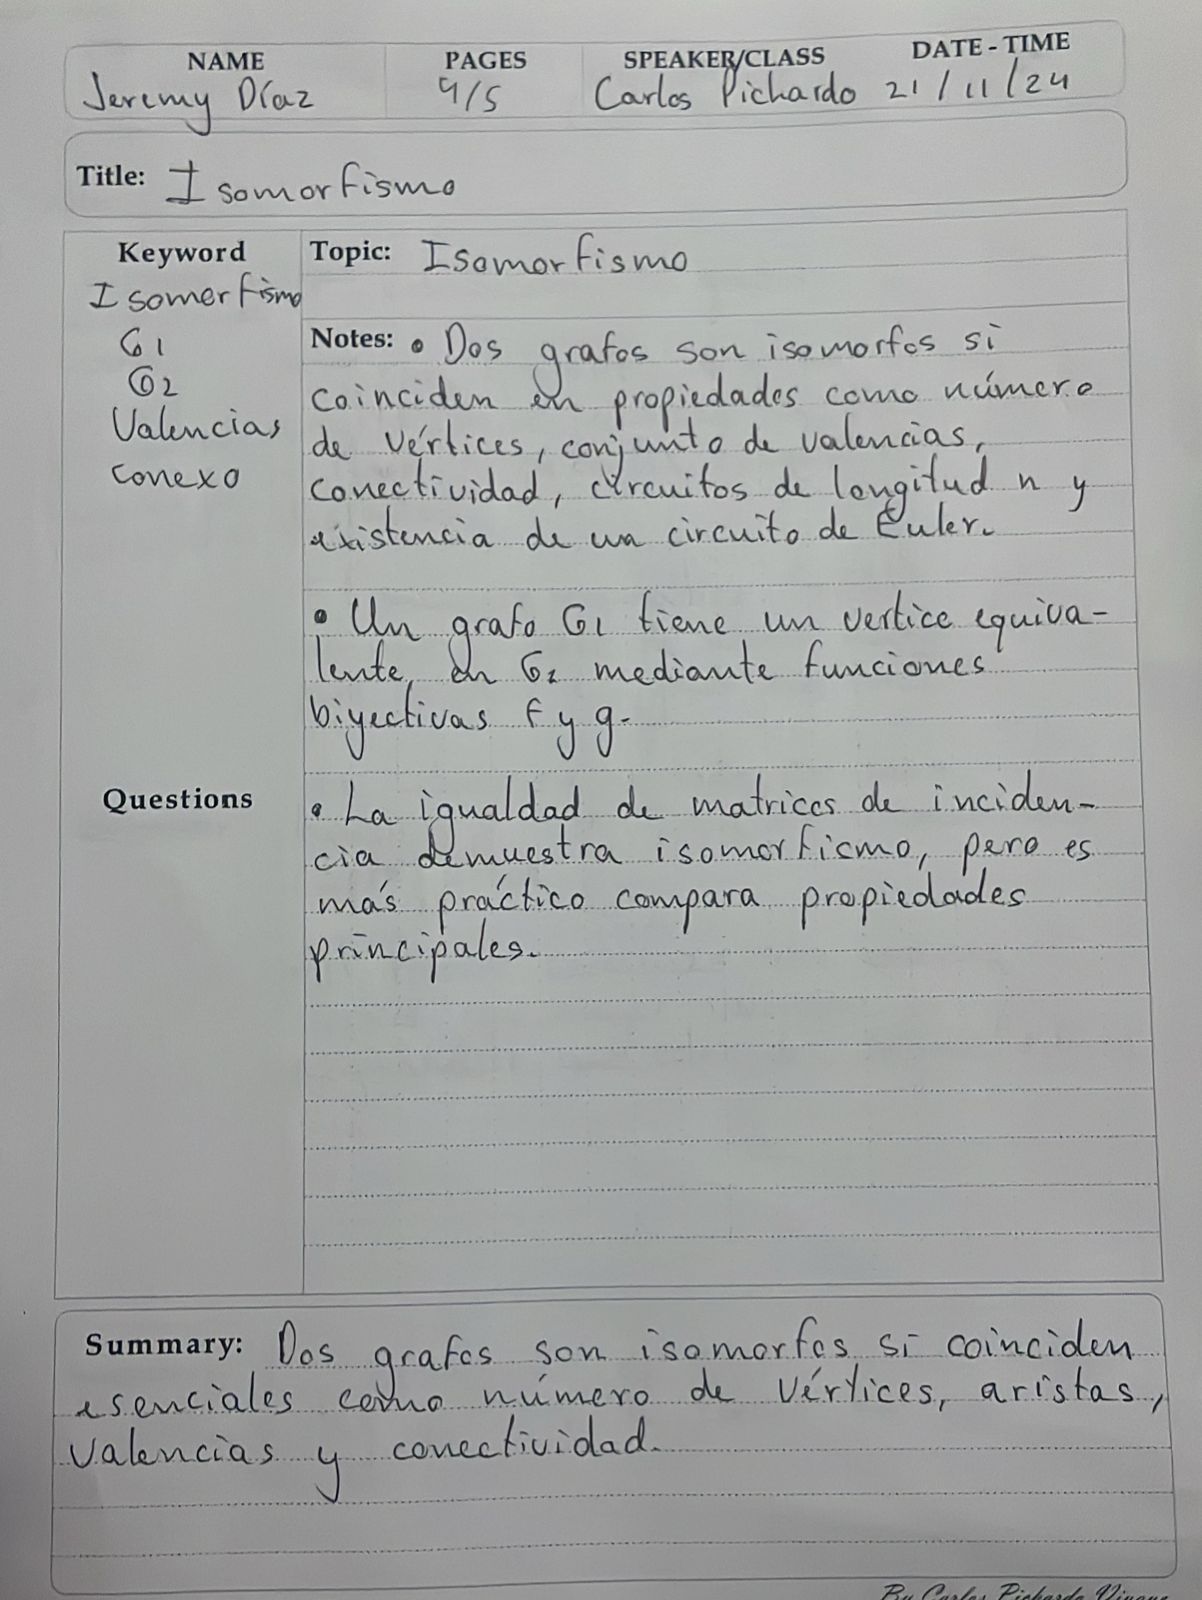 NAME PAGES SPEAKER/CLASS DATE - TIME
Jeremy Díaz 4/5 Carlos Pichardo 21/11/24
Title: Isomorfismo
Keyword
Isomorfismo
G1
G2
Valencias
conexo
Topic: Isomorfismo
Notes: • Dos grafos son isomorfos si
coinciden en propiedades como número
de vértices, conjunto de valencias,
conectividad, circuitos de longitud n y
existencia de un circuito de Euler.
• Un grafo G1 tiene un vertice equiva-
lente, en G2 mediante funciones
biyectivas f y g.
Questions
• La igualdad de matrices de inciden-
cia demuestra isomorfismo, pero es
más práctico compara propiedades
principales.
Summary: Dos grafos son isomorfos si coinciden
esenciales como número de vértices, aristas,
valencias y conectividad.
By Carlos Pichardo